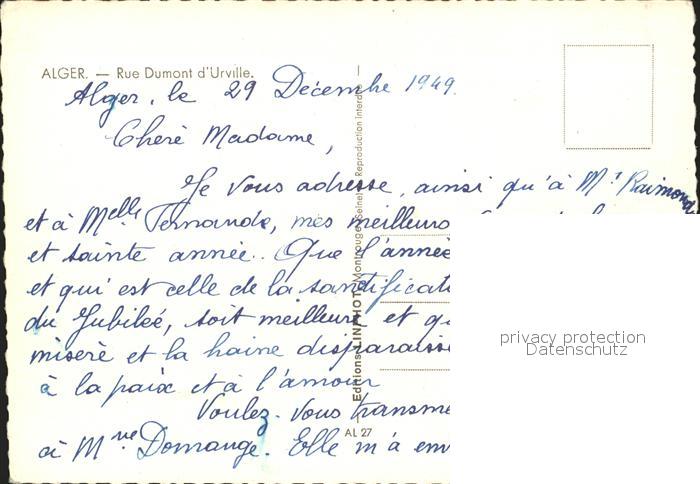 ALGER. — Rue Dumont d'Urville.
Alger, le 29 Décembre 1949.
Chère Madame,
Je vous adresse, ainsi qu'à Mr Raimond
et à Melle Fernande, mes meilleurs
et sainte année.. Que l'année
et qui est celle de la sanctificati
du Jubileé, soit meilleure et qu
misère et la haine disparaisse
à la paix et à l'amour
Voulez-vous transme
à Mme Domange. Elle m'a em
Editions LINPHOT Montrouge (Seine) — Reproduction interdite
AL 27
privacy protection
Datenschutz